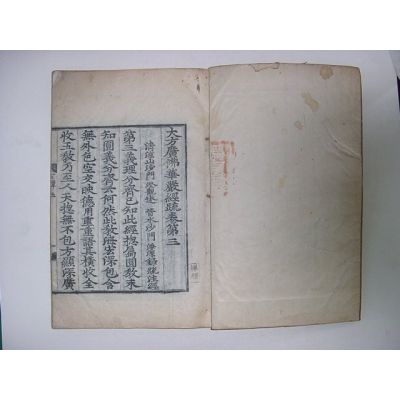 大方廣佛華嚴經疏卷第三
清涼山沙門澄觀述 晉水沙門淨源錄疏注經
第三義理分齊已知此經揔屬圓教未
知圓義分齊云何然此教海宏深包含
無外色空交映德用重重語其橫收全
收五教乃至人天揔無不包方顯深廣